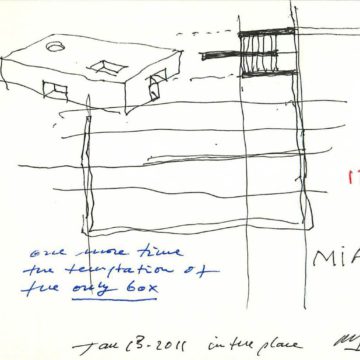 MiA
one more time
the temptation of
the only box
Jan 13-2011 in the place